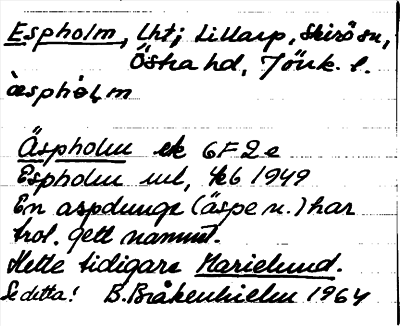 Espholm, lht; Lillarp, Skirö sn,
Östra hd, Jönk. l.
Äspholm ek 6F2e
Espholm utl, 1949
En aspdunge (äspe n.) har
trol. gett namnet.
Hette tidigare Marielund.
Se detta! B. Bråkenhielm 1964